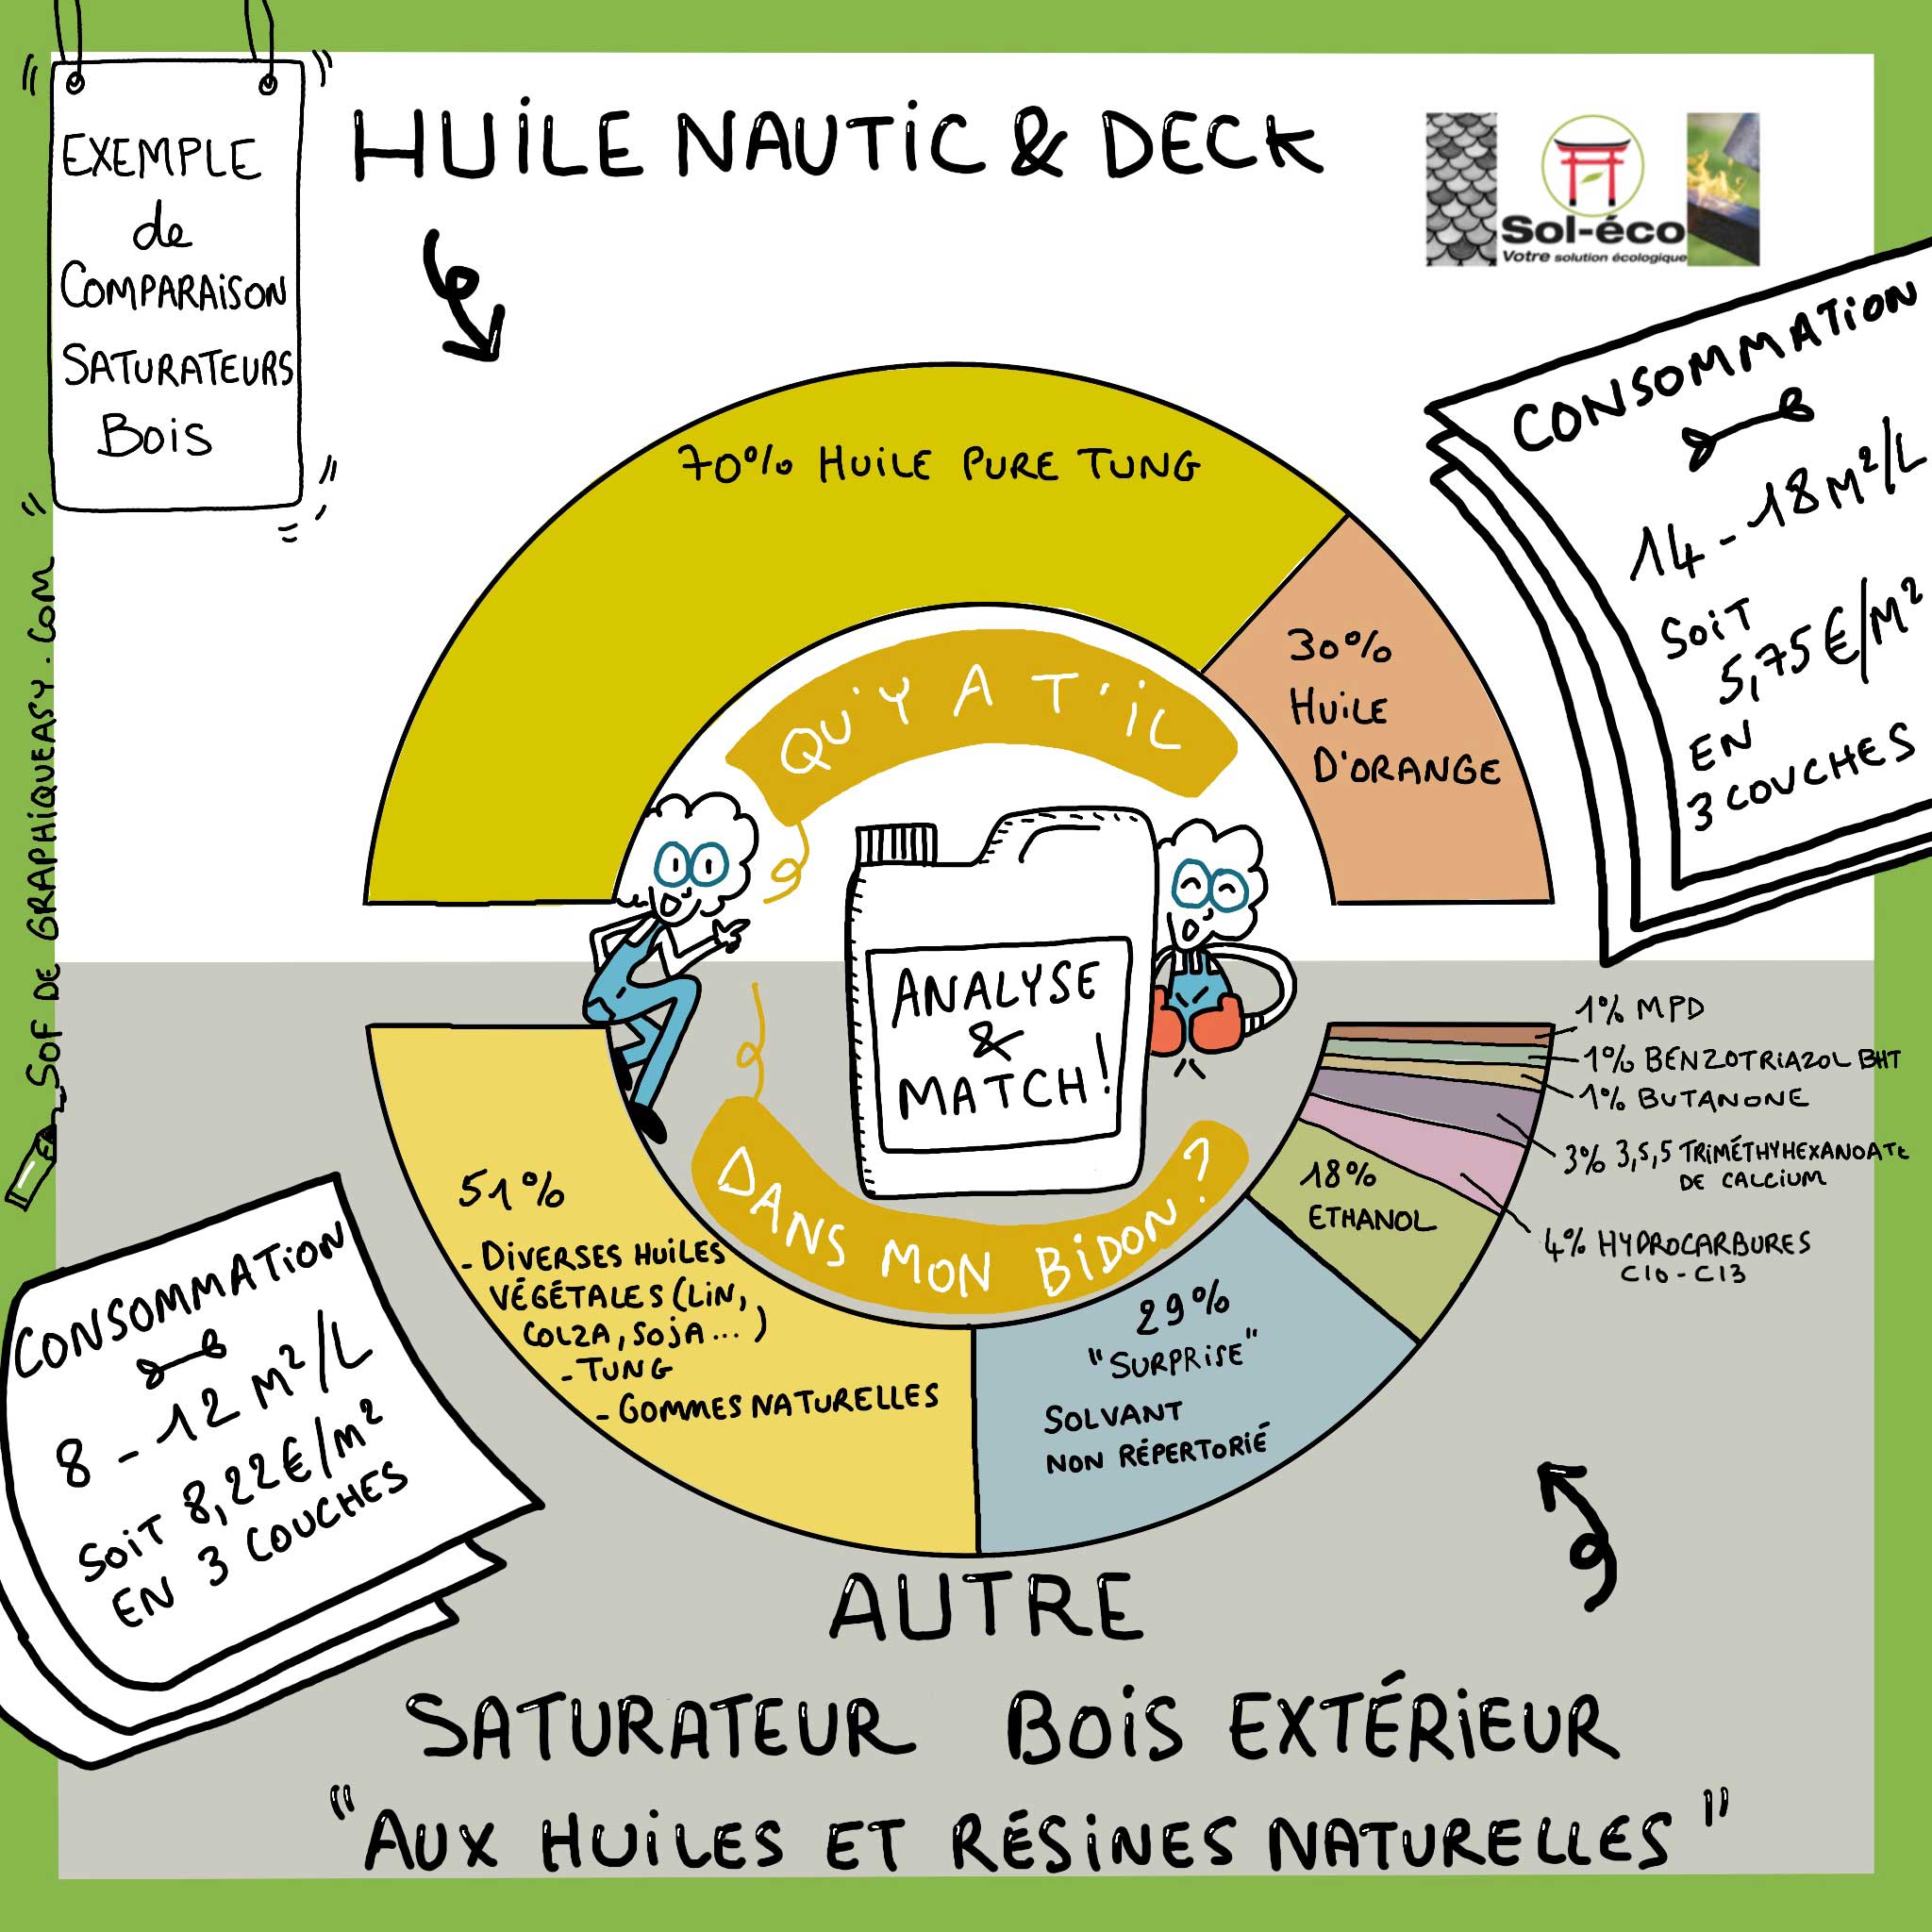 EXEMPLE
de
COMPARAISON
SATURATEURS
BOIS
HUILE NAUTIC & DECK
Sol-éco
Votre solution écologique
CONSOMMATION
14 - 18 M²/L
SOIT
5,75 €/M²
EN
3 COUCHES
70% HUILE PURE TUNG
30%
HUILE
D'ORANGE
QU'Y A T'IL
ANALYSE
&
MATCH!
DANS MON BIDON?
1% MPD
1% BENZOTRIAZOL BHT
1% BUTANONE
3% 3,5,5 TRIMÉTHYHEXANOATE
DE CALCIUM
4% HYDROCARBURES
C10 - C13
18%
ETHANOL
29%
"SURPRISE"
SOLVANT
NON RÉPERTORIÉ
51%
- DIVERSES HUILES
VÉGÉTALES (LIN,
COLZA, SOJA...)
- TUNG
- GOMMES NATURELLES
CONSOMMATION
8 - 12 M²/L
SOIT 8,22€/m²
EN 3 COUCHES
AUTRE
SATURATEUR BOIS EXTÉRIEUR
"AUX HUILES ET RÉSINES NATURELLES"
SOF DE GRAPHIQUEASY.COM